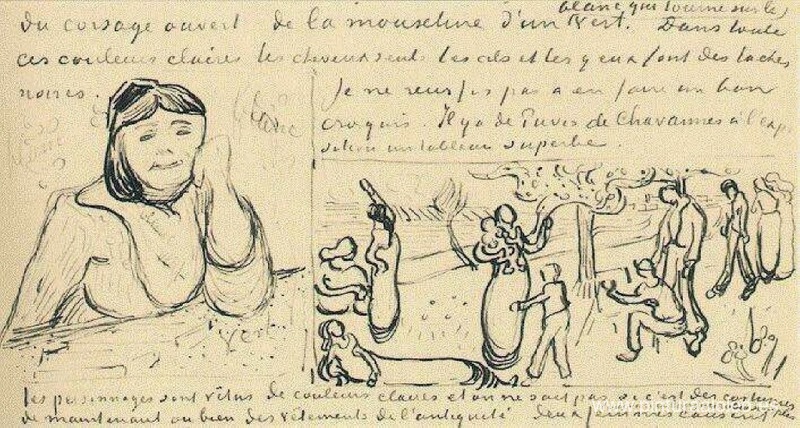 blanc qui tourne sur le
du corsage ouvert de la mousseline d'un vert. Dans toute
ces couleurs claires les cheveux seuls les cils et les yeux font des taches
noires.
Je ne reussis pas a en faire un bon
croquis. Il y a de Puvis de Chavannes a l'expo
sition un tableau superbe.
blanc
vert
les personnages sont vêtus de couleurs claires et on ne sait pas si c'est des costumes
de maintenant ou bien des vêtements de l'antiquité deux femmes causent